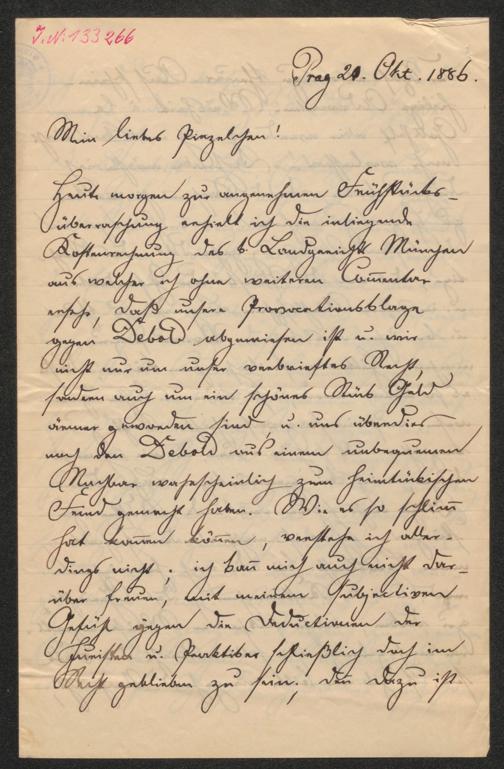 J.N. 133266
Prag 20. Okt. 1886.
Mein liebes Pinzelchen!
Heute morgen zur angenehmen Frühstücks-
überraschung erhielt ich die inliegende
Kostenrechnung des b. Landgericht München
aus welcher ich ohne weiteren Com̅entar
ersehe, daß unsere Provocationsklage
gegen Debold abgewiesen ist u. wir
nicht nur um unser verbrieftes Recht,
sondern auch um ein schönes Stück Geld
ärmer geworden sind, u. uns überdies
noch den Debold aus einem unbequemen
Nachbar wahrscheinlich zum heimtückischen
Feind gemacht haben. Wie es so schlim̅
hat kom̅en kön̅en, verstehe ich aller-
dings nicht; ich kan̅ mich auch nicht dar-
über freuen, mit meinem subjectiven
Gefühl gegen die Deductionen der
Juristen u. Praktiker schließlich doch im
Recht geblieben zu sein, den̅ dazu ist